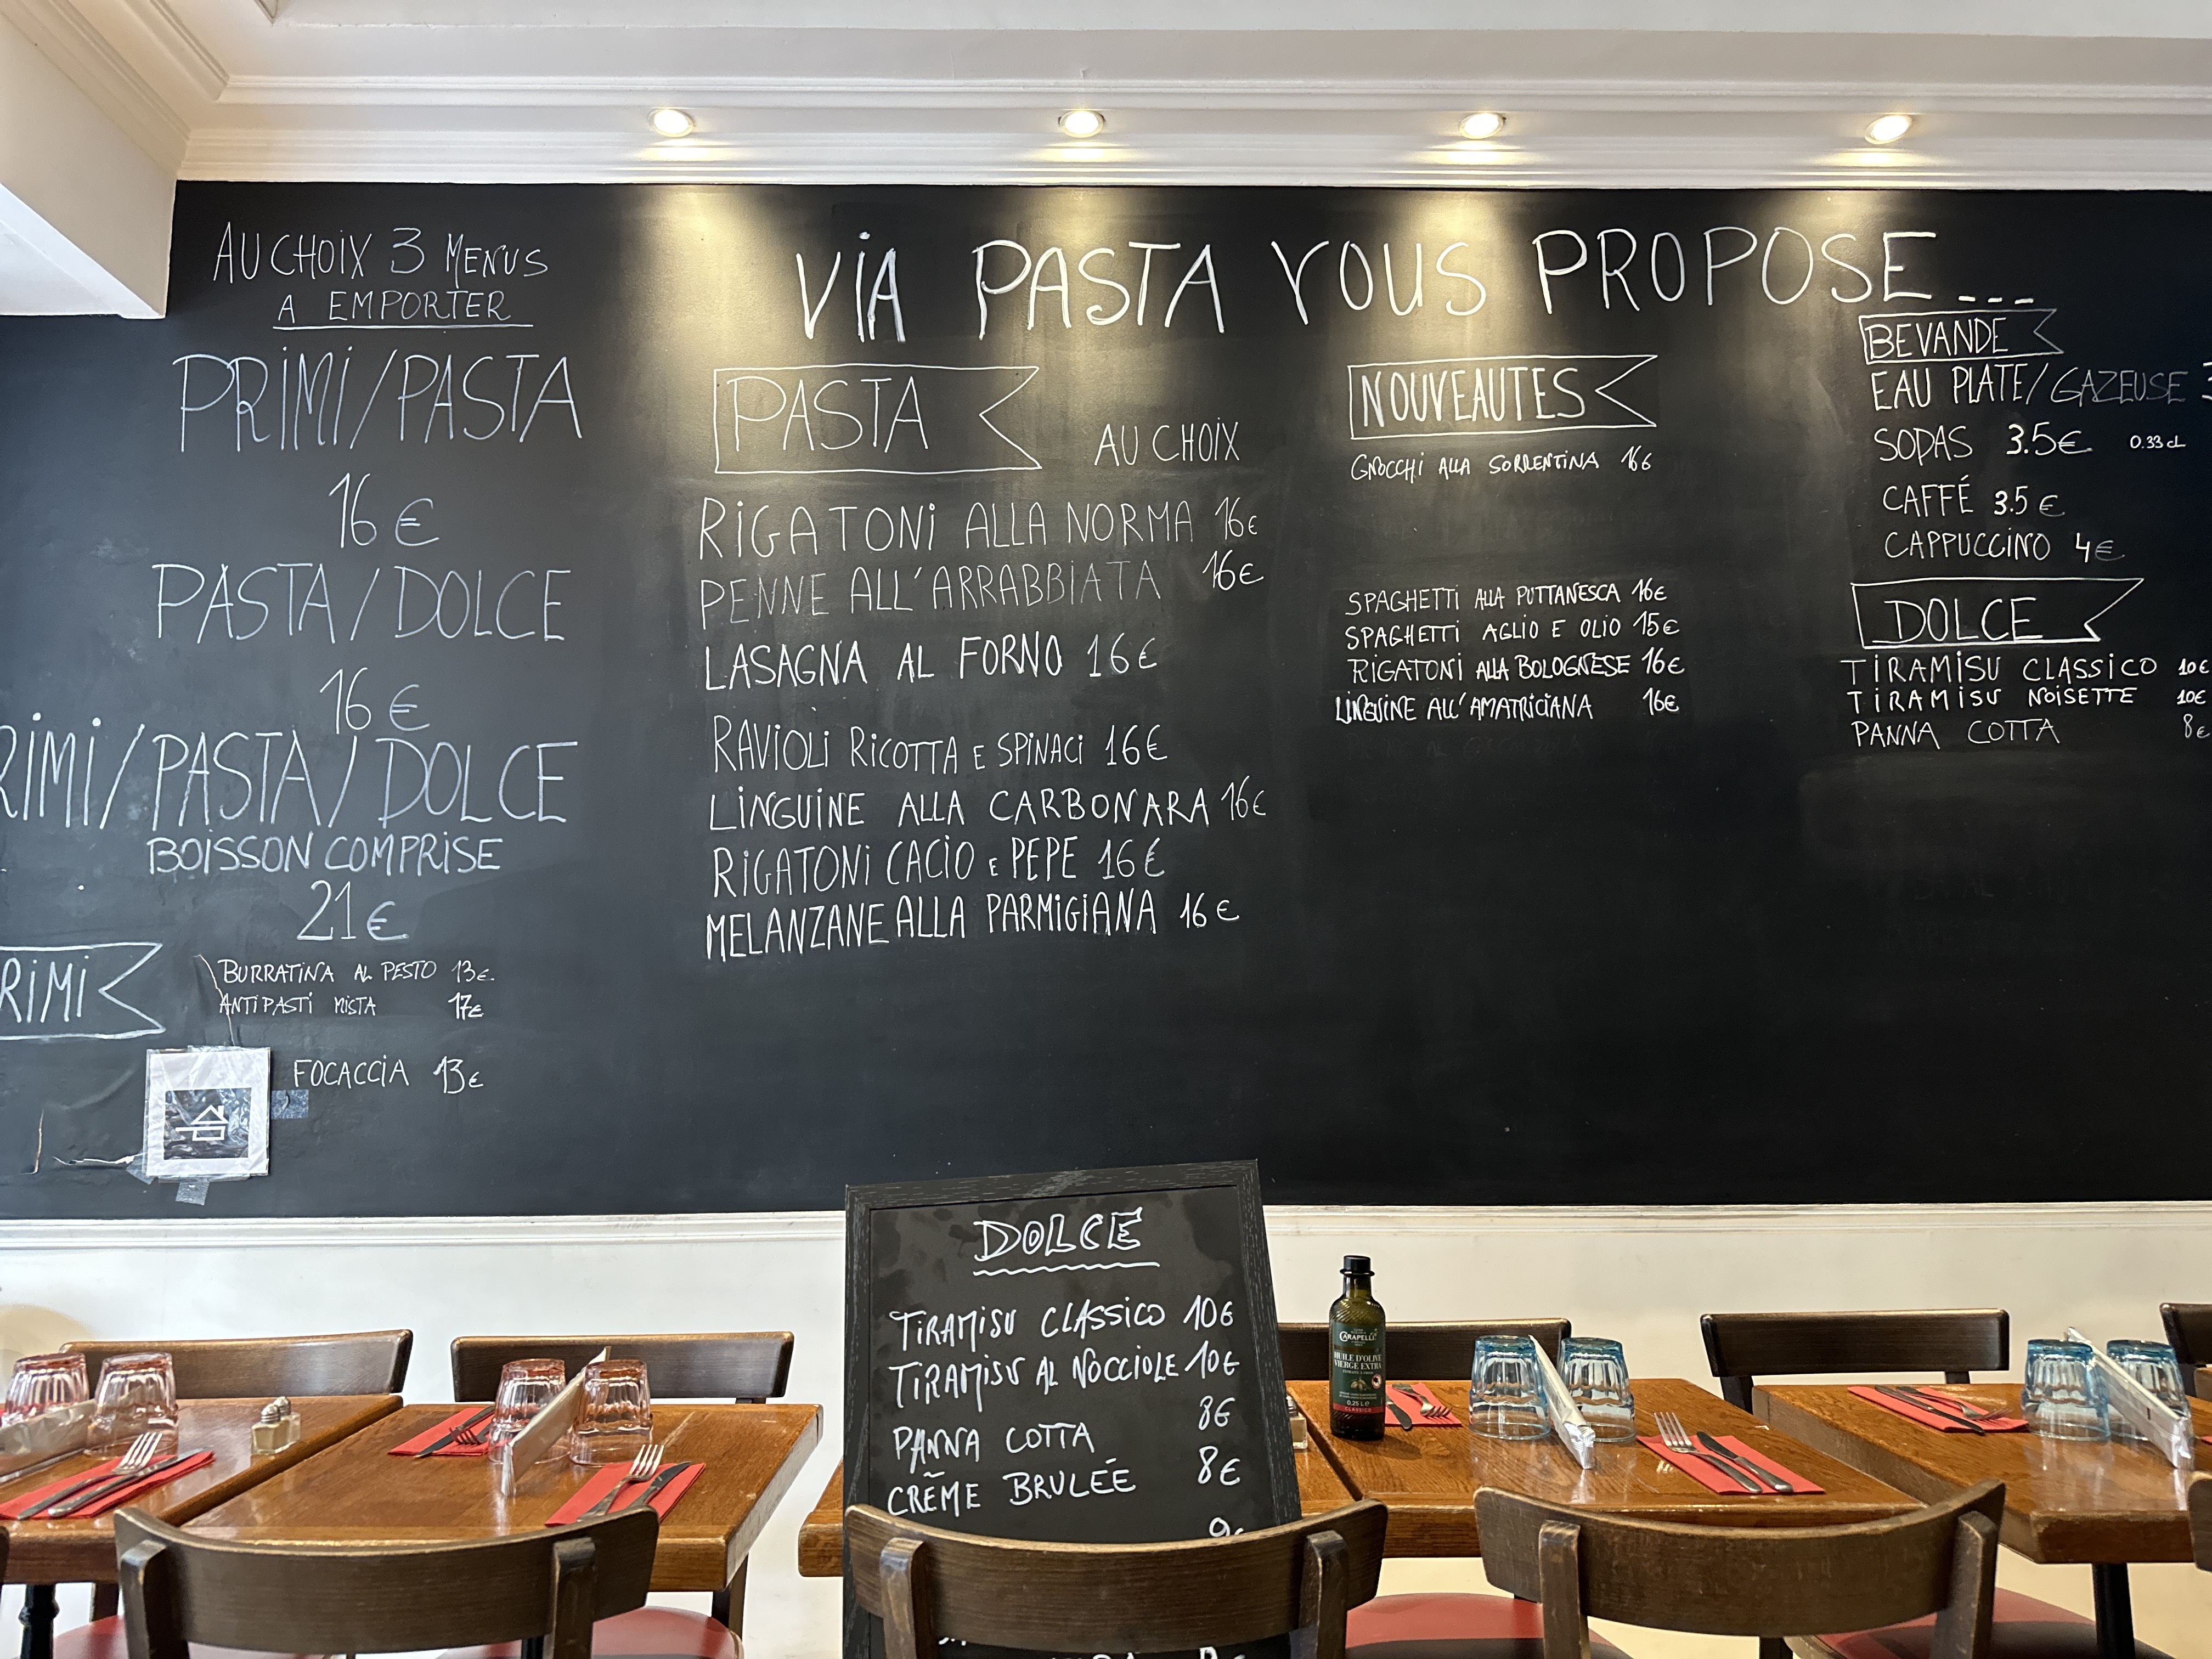 AU CHOIX 3 MENUS
A EMPORTER
PRIMI/PASTA
16€
PASTA/DOLCE
16€
RIMI/PASTA/DOLCE
BOISSON COMPRISE
21€
RIMI
BURRATINA AL PESTO 13€
ANTIPASTI MISTA 17€
FOCACCIA 13€
VIA PASTA VOUS PROPOSE...
PASTA AU CHOIX
RIGATONI ALLA NORMA 16€
PENNE ALL'ARRABBIATA 16€
LASAGNA AL FORNO 16€
RAVIOLI RICOTTA E SPINACI 16€
LINGUINE ALLA CARBONARA 16€
RIGATONI CACIO E PEPE 16€
MELANZANE ALLA PARMIGIANA 16€
NOUVEAUTES
GNOCCHI ALLA SORRENTINA 16€
SPAGHETTI ALLA PUTTANESCA 16€
SPAGHETTI AGLIO E OLIO 15€
RIGATONI ALLA BOLOGNESE 16€
LINGUINE ALL'AMATRICIANA 16€
BEVANDE
EAU PLATE/GAZEUSE
SODAS 3.5€ 0.33 cl
CAFFÉ 3.5€
CAPPUCCINO 4€
DOLCE
TIRAMISU CLASSICO 10€
TIRAMISU NOISETTE 10€
PANNA COTTA 8€
DOLCE
TIRAMISU CLASSICO 10€
TIRAMISU AL NOCCIOLE 10€
PANNA COTTA 8€
CRÊME BRULÉE 8€
CARAPELLI
HUILE D'OLIVE
VIERGE EXTRA
0,25 L e
CLASSICO